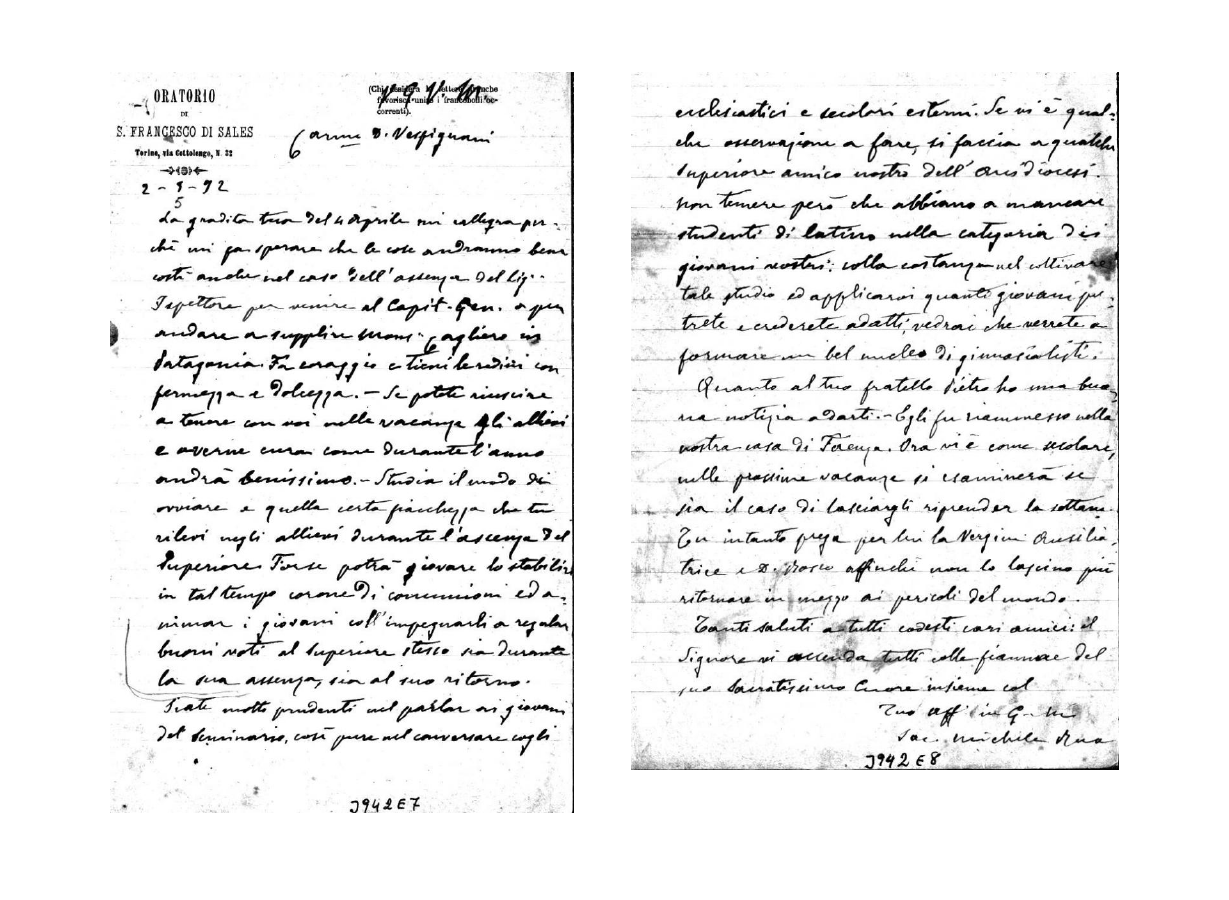 ORATORIO
DI
S. FRANCESCO DI SALES
Torino, via Cottolengo, N. 32
(Chi desidera lettere anche
favorisca unire i francobolli oc-
correnti).
V. G. V. M.
Carmo D. Vespignani
2 - 5 - 92
5
La gradita tua del 4 Aprile mi rallegra per-
chè mi fa sperare che le cose andranno bene
costì anche nel caso dell'assenza del Sig.
Ispettore per venire al Capit. Gen. o per
andare a supplire Mons. Cagliero in
Patagonia. Fa coraggio e tieni le redini con
fermezza e dolcezza. - Se potete riuscire
a tenere con voi nelle vacanze gli allievi
e averne cura come durante l'anno
andrà benissimo. - Studia il modo di
ovviare a quella certa fiacchezza che tu
rilevi negli allievi durante l'assenza del
Superiore. Forse potrà giovare lo stabilire
in tal tempo corone di comunioni ed a-
nimar i giovani coll'impegnarli a regalar
buoni voti al Superiore stesso sia durante
la sua assenza, sia al suo ritorno.
Siate molto prudenti nel parlar ai giovani
del seminario, così pure nel conversare cogli
J942E7
ecclesiastici e secolari esterni. Se vi è qual-
che osservazione a fare, si faccia a qualche
Superiore amico nostro dell'Arcidiocesi.
Non temere però che abbiano a mancare
studenti di latino nella categoria dei
giovani nostri: colla costanza nel coltivare
tale studio ed applicarvi quanti giovani po-
trete e crederete adatti, vedrai che verrete a
formare un bel nucleo di ginnasialisti.
Quanto al tuo fratello Pietro ho una buo-
na notizia a darti. - Egli fu riammesso nella
nostra casa di Faenza. Ora vi è come secolare,
nelle prossime vacanze si esaminerà se
sia il caso di lasciargli riprender la sottana.
Tu intanto prega per lui la Vergine Ausilia-
trice e D. Bosco affinchè non lo lascino più
ritornare in mezzo ai pericoli del mondo.
Tanti saluti a tutti codesti cari amici: il
Signore vi accenda tutti colle fiamme del
suo Sacratissimo Cuore insieme col
Tuo aff in G. M.
Sac. Michele Rua
J942E8